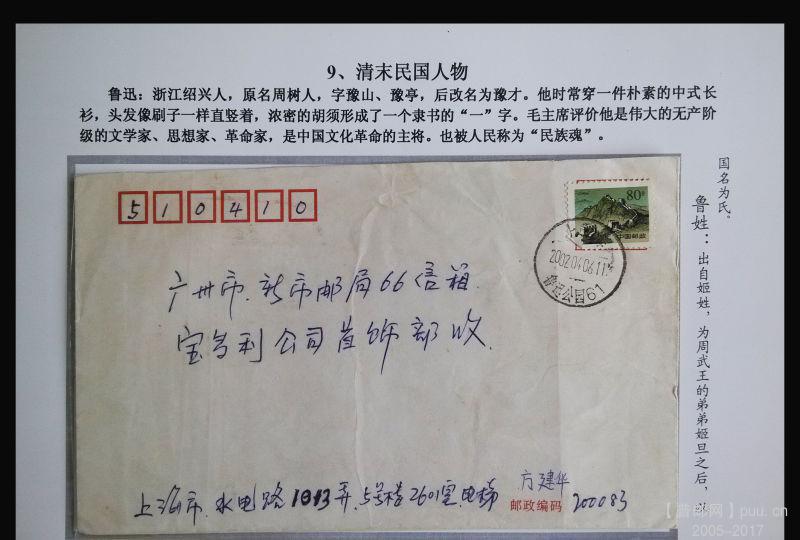 9、清末民国人物
鲁迅：浙江绍兴人，原名周树人，字豫山、豫亭，后改名为豫才。他时常穿一件朴素的中式长
衫，头发像刷子一样直竖着，浓密的胡须形成了一个隶书的“一”字。毛主席评价他是伟大的无产阶
级的文学家、思想家、革命家，是中国文化革命的主将。也被人民称为“民族魂”。
510410
80分
中国邮政
2002.04.06.11
鲁迅公园61
广州市.新市邮局66信箱
宝多利公司首饰部收
方建华
上海市.水电路1013弄.5号楼2601室.电梯
邮政编码 200083
鲁姓：出自姬姓，为周武王的弟弟姬旦之后，
国名为氏。
【puu.cn
2005--2017